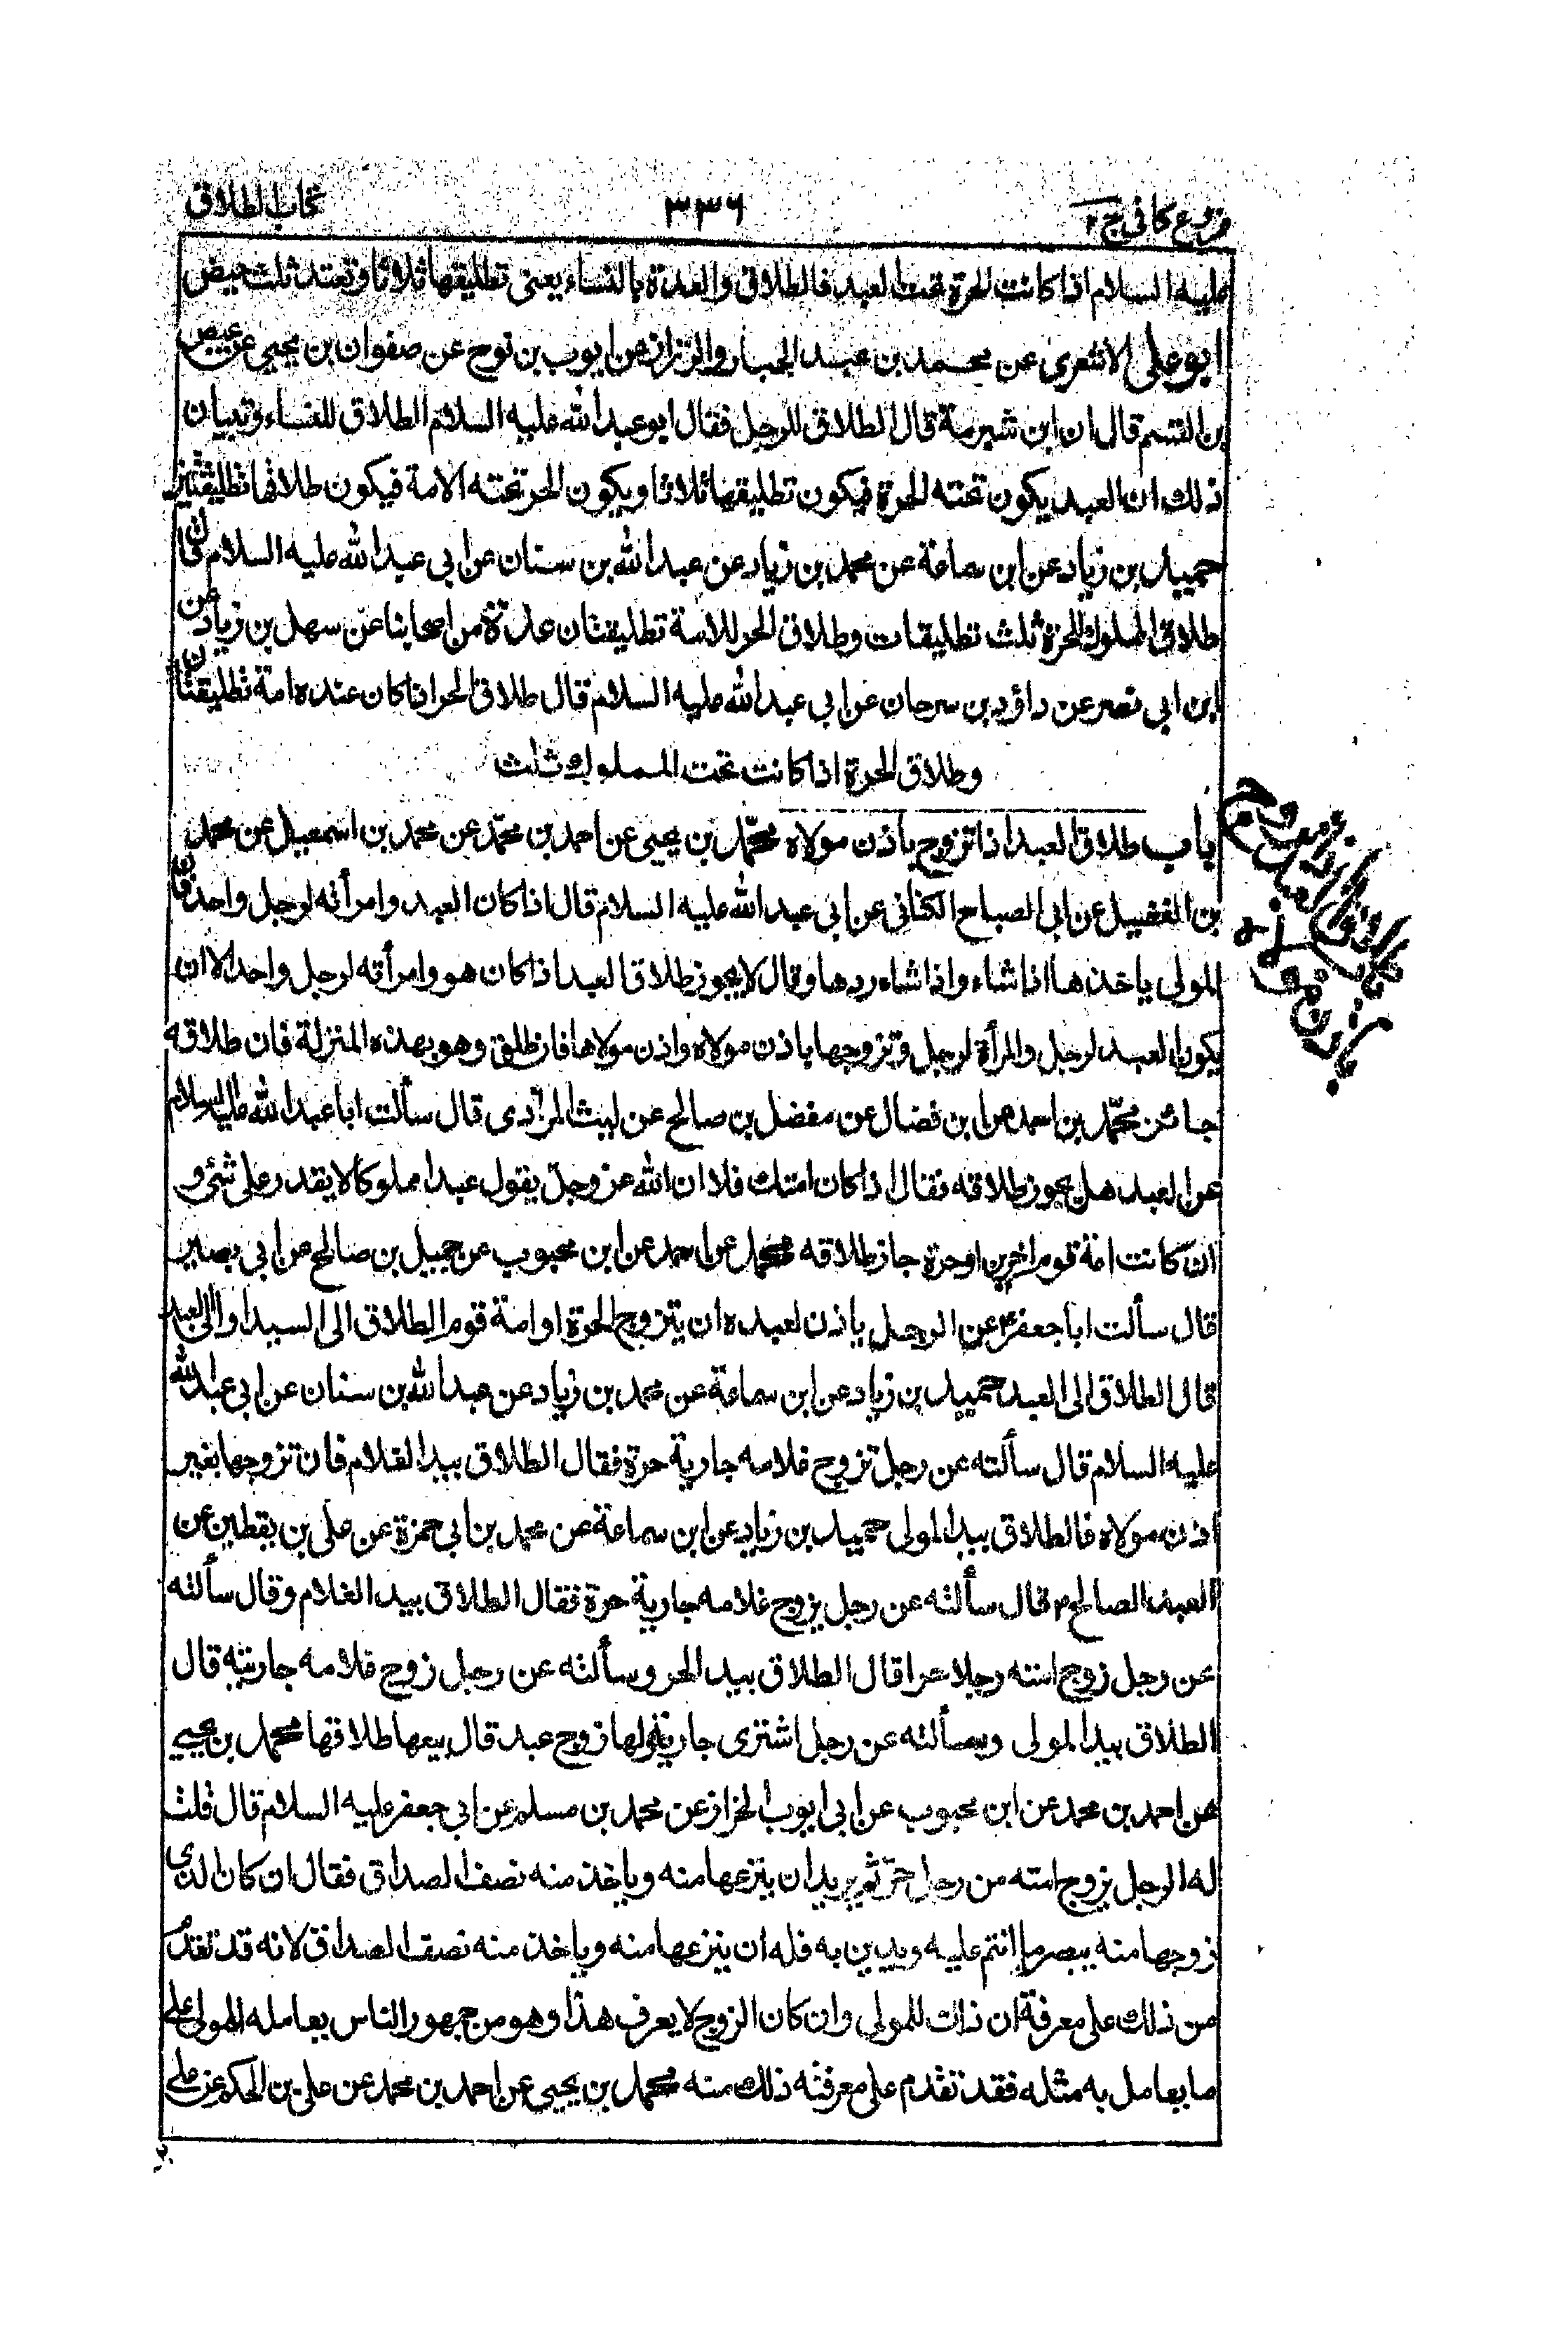 فروع كافى ج ٢
٣٣٦
كتاب الطلاق
عليه السلام اذا كانت الحرة تحت العبد فالطلاق والعدة بالنساء يعنى تطليقها ثلاثا وتعتد ثلث حيض
ابو على الاشعرى عن محمد بن عبد الجبار والرزاز عن ايوب بن نوح عن صفوان بن يحيى عن عيص
بن القسم قال ان ابن شبرمة قال الطلاق للرجل فقال ابو عبد الله عليه السلام الطلاق للنساء وتبيان
ذلك ان العبد يكون تحته الحرة فيكون تطليقها ثلاثا ويكون الحر تحته الامة فيكون طلاقها تطليقتين
حميد بن زياد عن ابن سماعة عن محمد بن زياد عن عبد الله بن سنان عن ابى عبد الله عليه السلام قال
طلاق المملوك للحرة ثلث تطليقات وطلاق الحر للامة تطليقتان عدة من اصحابنا عن سهل بن زياد عن
ابن ابى نصر عن داؤد بن سرحان عن ابى عبد الله عليه السلام قال طلاق الحر اذا كان عنده امة تطليقتان
وطلاق الحرة اذا كانت تحت المملوك ثلث
باب طلاق العبد اذا تزوج باذن مولاه محمد بن يحيى عن احمد بن محمد عن محمد بن اسمعيل عن محمد
بن الفضيل عن ابى الصباح الكنانى عن ابى عبد الله عليه السلام قال اذا كان العبد وامرأته لرجل واحد فان
المولى ياخذها اذا شاء واذا شاء ردها وقال لا يجوز طلاق العبد اذا كان هو وامرأته لرجل واحد الا ان
يكون العبد لرجل والمرأة لرجل وتزوجها باذن مولاه واذن مولاها فان طلق وهو بهذه المنزلة فان طلاقه
جائز محمد بن احمد عن ابن فضال عن مفضل بن صالح عن ليث المرادى قال سألت ابا عبد الله عليه السلام
عن العبد هل يجوز طلاقه فقال اذا كان امتك فلا ان الله عز وجل يقول عبدا مملوكا لا يقدر على شئ و
ان كانت امة قوم اخرين او حرة جاز طلاقه محمد عن احمد عن ابن محبوب عن جميل بن صالح عن ابى بصير
قال سألت ابا جعفر ع عن الرجل ياذن لعبده ان يتزوج الحرة او امة قوم الطلاق الى السيد او الى العبد
قال الطلاق الى العبد حميد بن زياد عن ابن سماعة عن محمد بن زياد عن عبد الله بن سنان عن ابى عبد الله
عليه السلام قال سألته عن رجل تزوج غلامه جارية حرة فقال الطلاق بيد الغلام فان تزوجها بغير
اذن مولاه فالطلاق بيد المولى حميد بن زياد عن ابن سماعة عن محمد بن ابى حمزة عن على بن يقطين عن
العبد الصالح ع قال سألته عن رجل يزوج غلامه جارية حرة فقال الطلاق بيد الغلام وقال سألته
عن رجل زوج امته رجلا حرا قال الطلاق بيد الحر وسألته عن رجل زوج غلامه جاريته قال
الطلاق بيد المولى وسألته عن رجل اشترى جارية ولها زوج عبد قال بيعها طلاقها محمد بن يحيى
عن احمد بن محمد عن ابن محبوب عن ابى ايوب الخزاز عن محمد بن مسلم عن ابى جعفر عليه السلام قال قلت
له الرجل يزوج امته من رجل حر ثم يريد ان ينزعها منه وياخذ منه نصف الصداق فقال ان كان الذى
زوجها منه يبصر ما انتم عليه ويدين به فله ان ينزعها منه وياخذ منه نصف الصداق لانه قد تقدم
من ذلك على معرفة ان ذلك للمولى وان كان الزوج لا يعرف هذا وهو من جمهور الناس يعامله المولى على
ما يعامل به مثله فقد تقدم على معرفته ذلك منه محمد بن يحيى عن احمد بن محمد عن على بن الحكم عن على